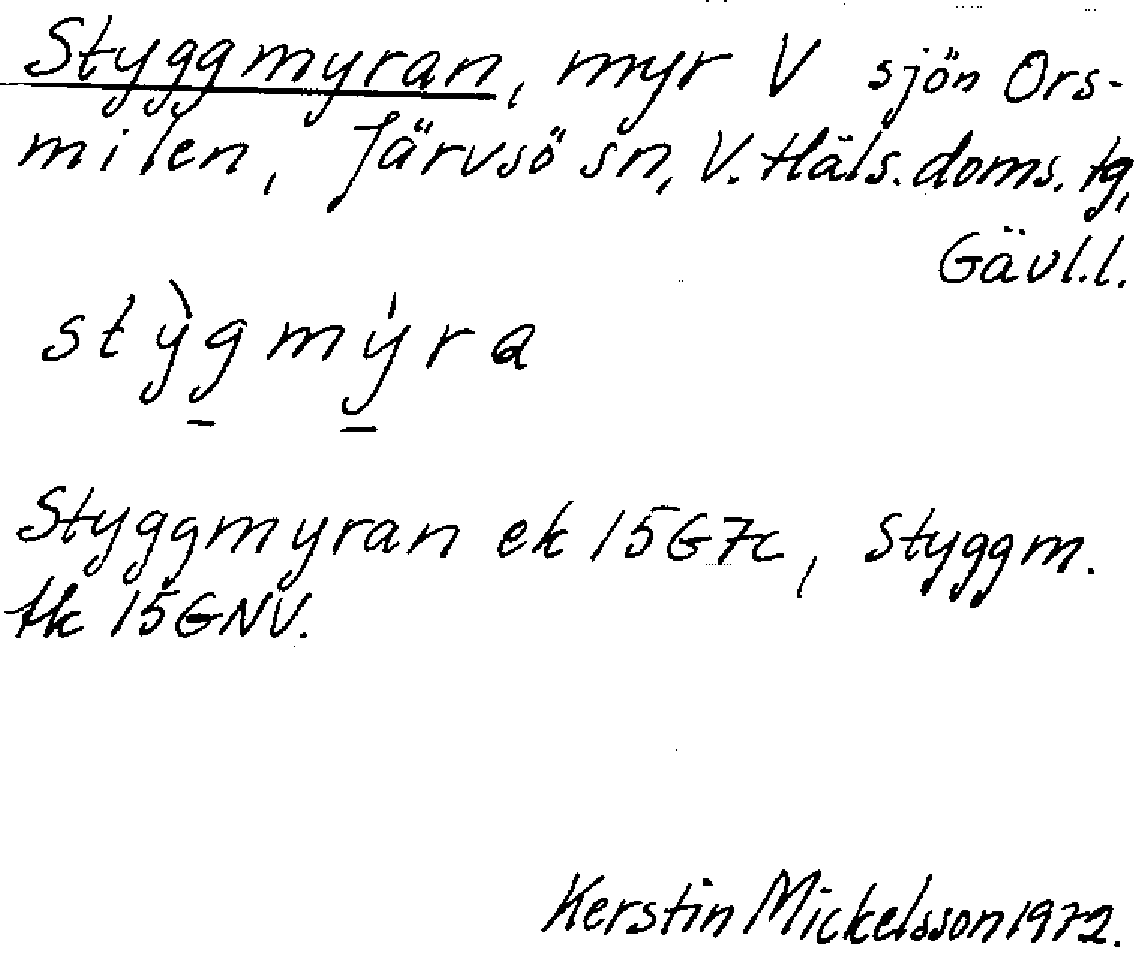 Styggmyran, myr V sjön Ors-
milen, Järvsö sn, V. Häls. doms. tg,
Gävl.l.
stỳg̱mý̱ra
Styggmyran ek 15G7c, Styggm.
tk 15GNV.
Kerstin Mickelsson 1972.